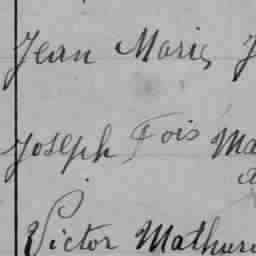 Jean Marie J
Joseph Fois Ma
Victor Mathuri